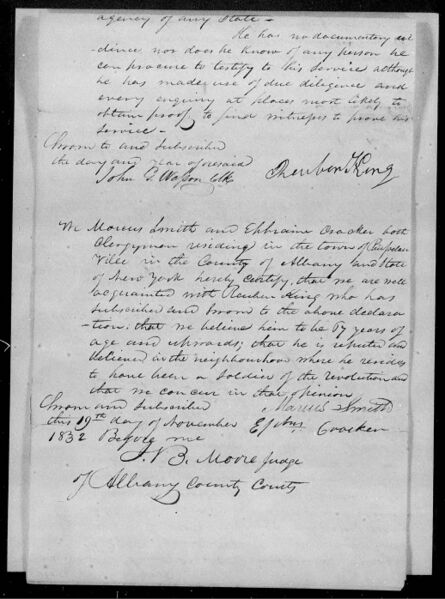 agency of any State -
He has no documentary evi
-dence nor does he know of any person he
can procure to testify to his service although
he has made use of due diligence and
every enquiry at places most likely to
obtain proof, to find witnesses to prove his
service -
Sworn to and Subscribed
the day and year aforesaid
John G. Wasson Clk
Reuben King
We Marcus Smith and Ephraim Crocker both
Clergymen residing in the town of Rensselaer
Ville in the County of Albany and State
of New York hereby certify, that we are well
acquainted with Reuben King who has
subscribed and sworn to the above declara
-tion, that we believe him to be 67 years of
age and upwards; that he is reputed and
believed in the neighbourhood where he resides
to have been a soldier of the revolution and
that we concur in that opinion
Sworn and Subscribed Marcus Smith
this 19th day of November Crocker
1832 Before me
B. Moore Judge
of Albany County Courts